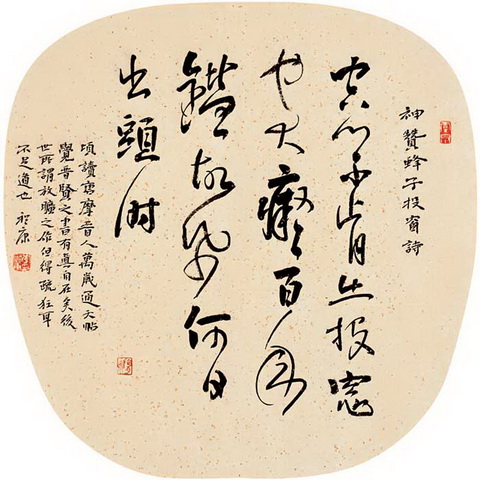 神贊蜂子投窗詩
空門不肯出投窓
也大癡百年
鑽故紙何日
出頭時
頃讀唐摩晉人萬歲通天帖
覺晉賢之書有真自在矣後
世所謂放曠之作但得疏狂耳
不足道也 於康